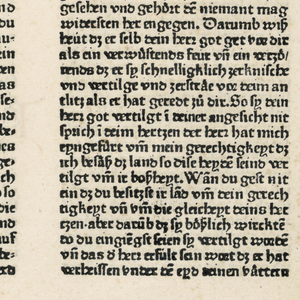 gesehen vnd gehört dē niemant mag
widersten her engegen. Darumb wiß
heüt dz er selb dein herz got get voz dir
als ein verwüstends feür vnd ein verzö-
rends dz er sy schnelligklich zerknische
vnd vertilge vnd zerstrāe voz deim an
tlitz als er hat geredt zů dir. So sy dein
herz got vertilgt in deiner angesicht nit
sprich in deim hertzen der herz hat mich
eyngefürt vm̄ mein gerechtigkeyt dz
ich besäß dz land so dise heyden seind ver
tilgt vm̄ ir boßheyt. Wān du gest nit
ein dz du besitzst ir länd vm̄ dein gerech
tigkeyt vn̄ vm̄ die gleicheyt deins her
tzen aber darūb dz sy bößlich wirckē
to du eingiengst seien sy vertilgt wozdē
vn̄ das d herz erfül sein wozt dz er hat
verheissen vnder dē eyd deinen vättern